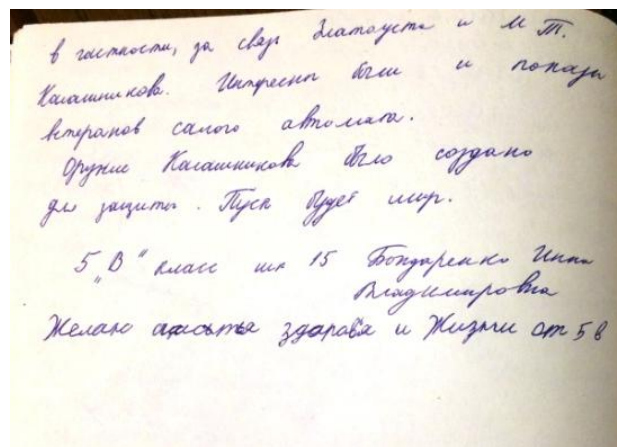 в частности, за связь Златоуста и М. Т.
Калашникова. Интересны были и показы
ветеранов самого автомата.
Оружие Калашникова было создано
для защиты. Пусть будет мир.
5 „В" класс шк 15 Бондаренко Инна
Владимировна
Желаю счастья здаровя и Жизни от 5 в